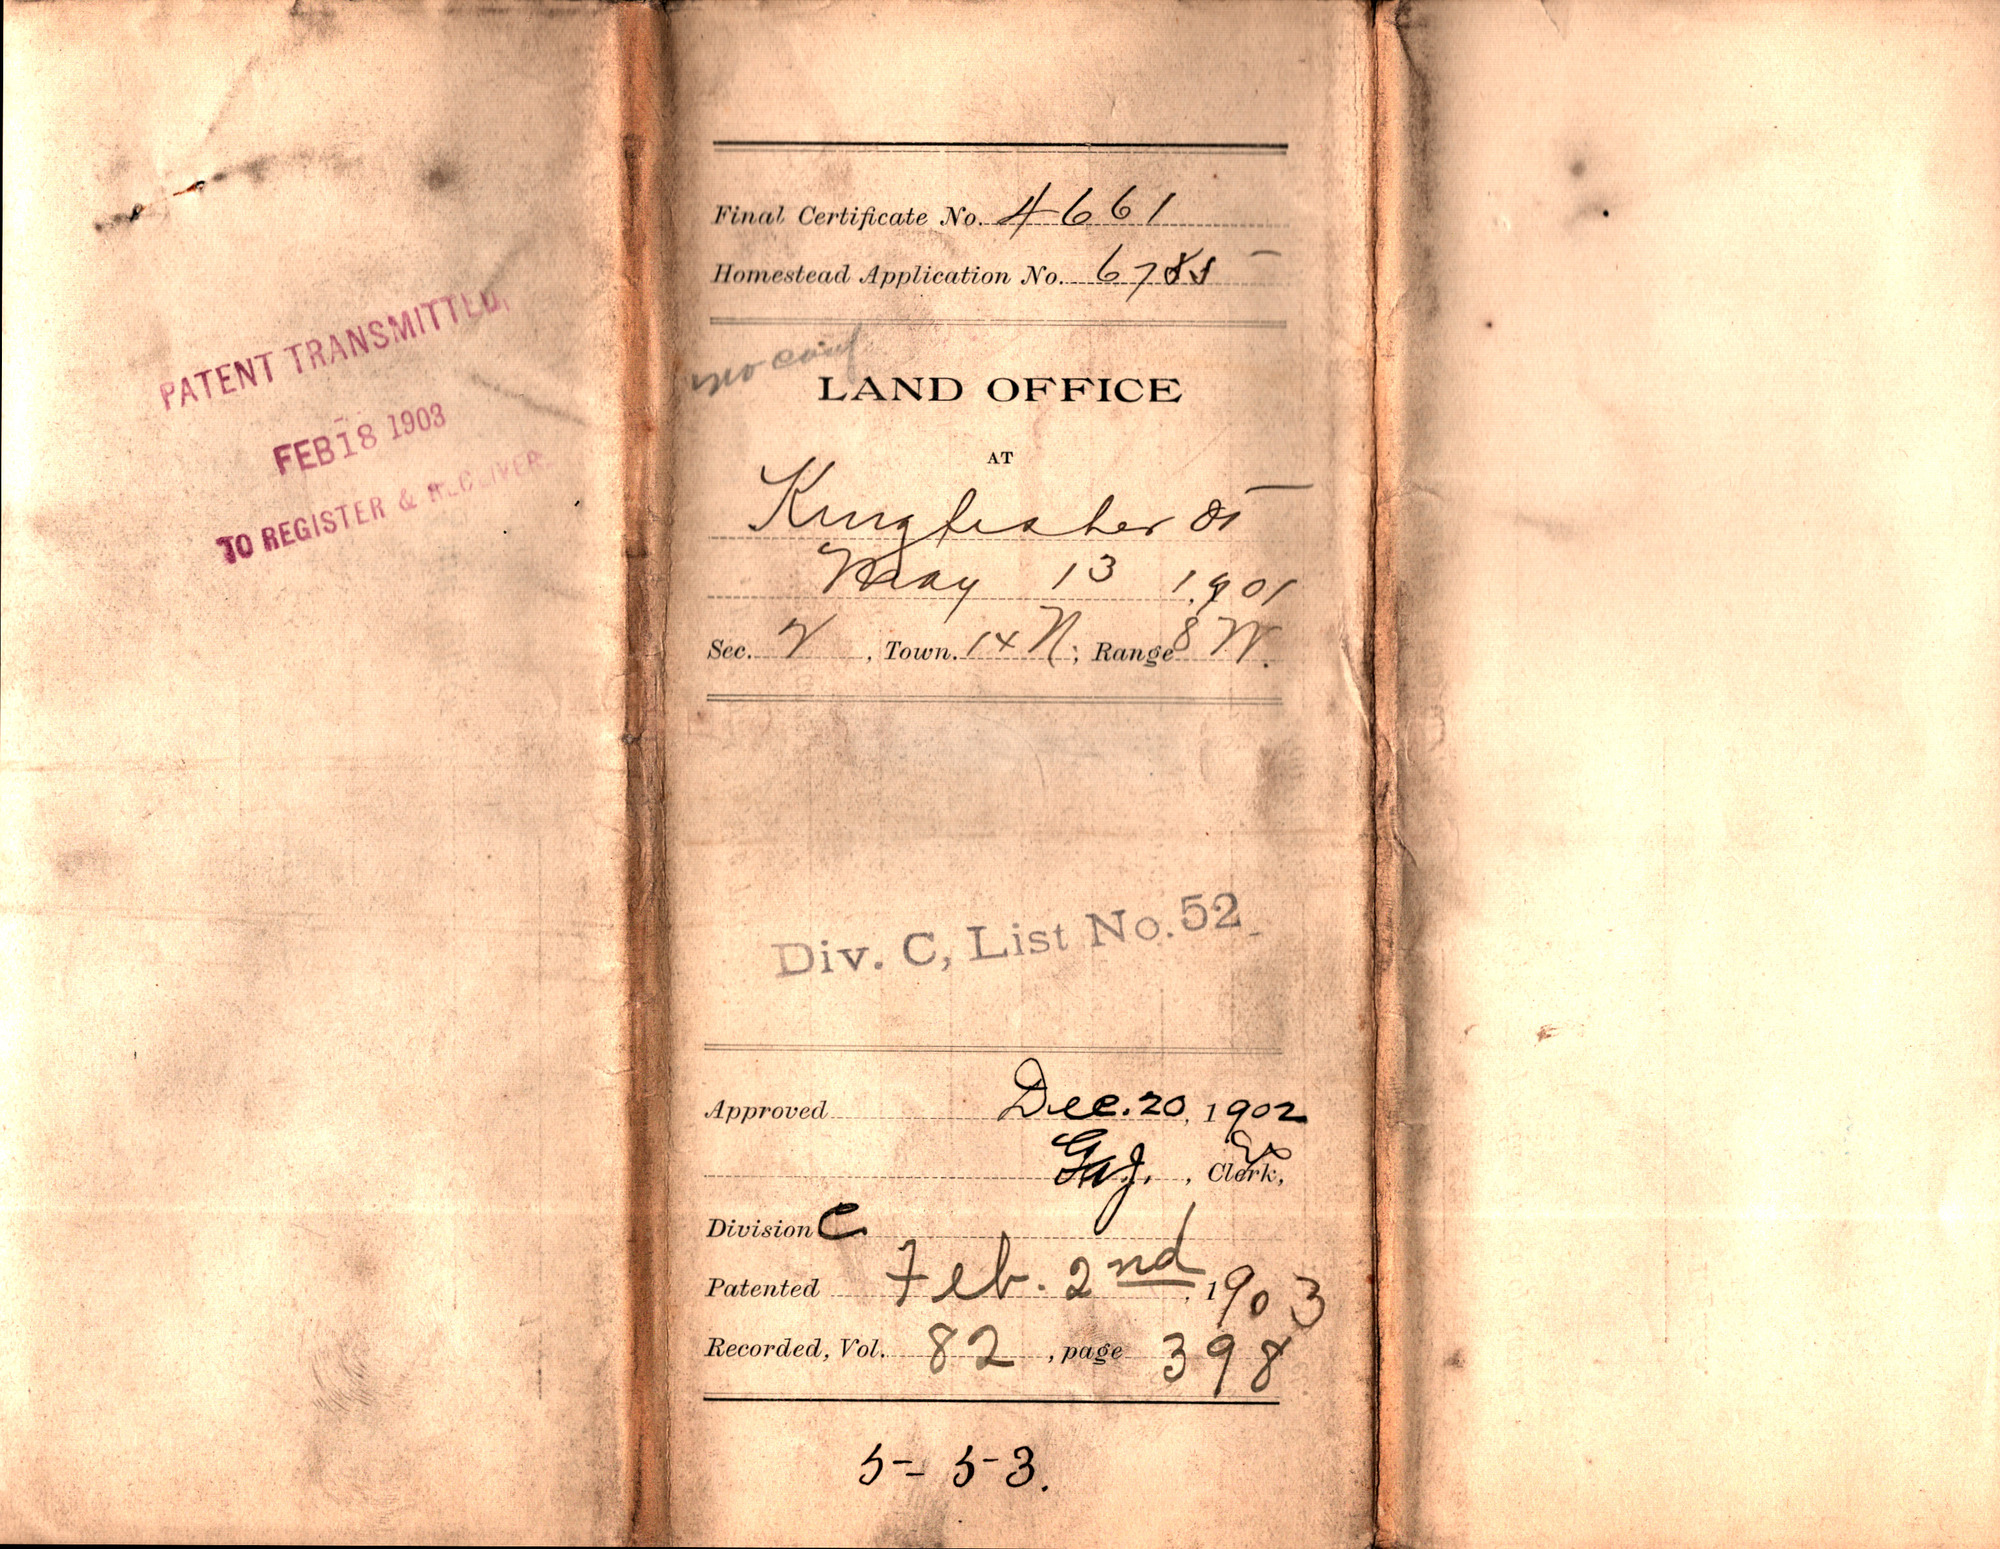 PATENT TRANSMITTED,
FEB 18 1903
TO REGISTER & RECEIVER.
Final Certificate No. 4661
Homestead Application No. 6785
no conf
LAND OFFICE
AT
Kingfisher OT
May 13 1901
Sec. 2, Town. 14 N; Range 8 W.
Div. C, List No. 52
Approved Dec. 20, 1902
Ex
, Clerk,
Division C
Patented Feb. 2nd, 1903
Recorded, Vol. 82, page 398
5-53.